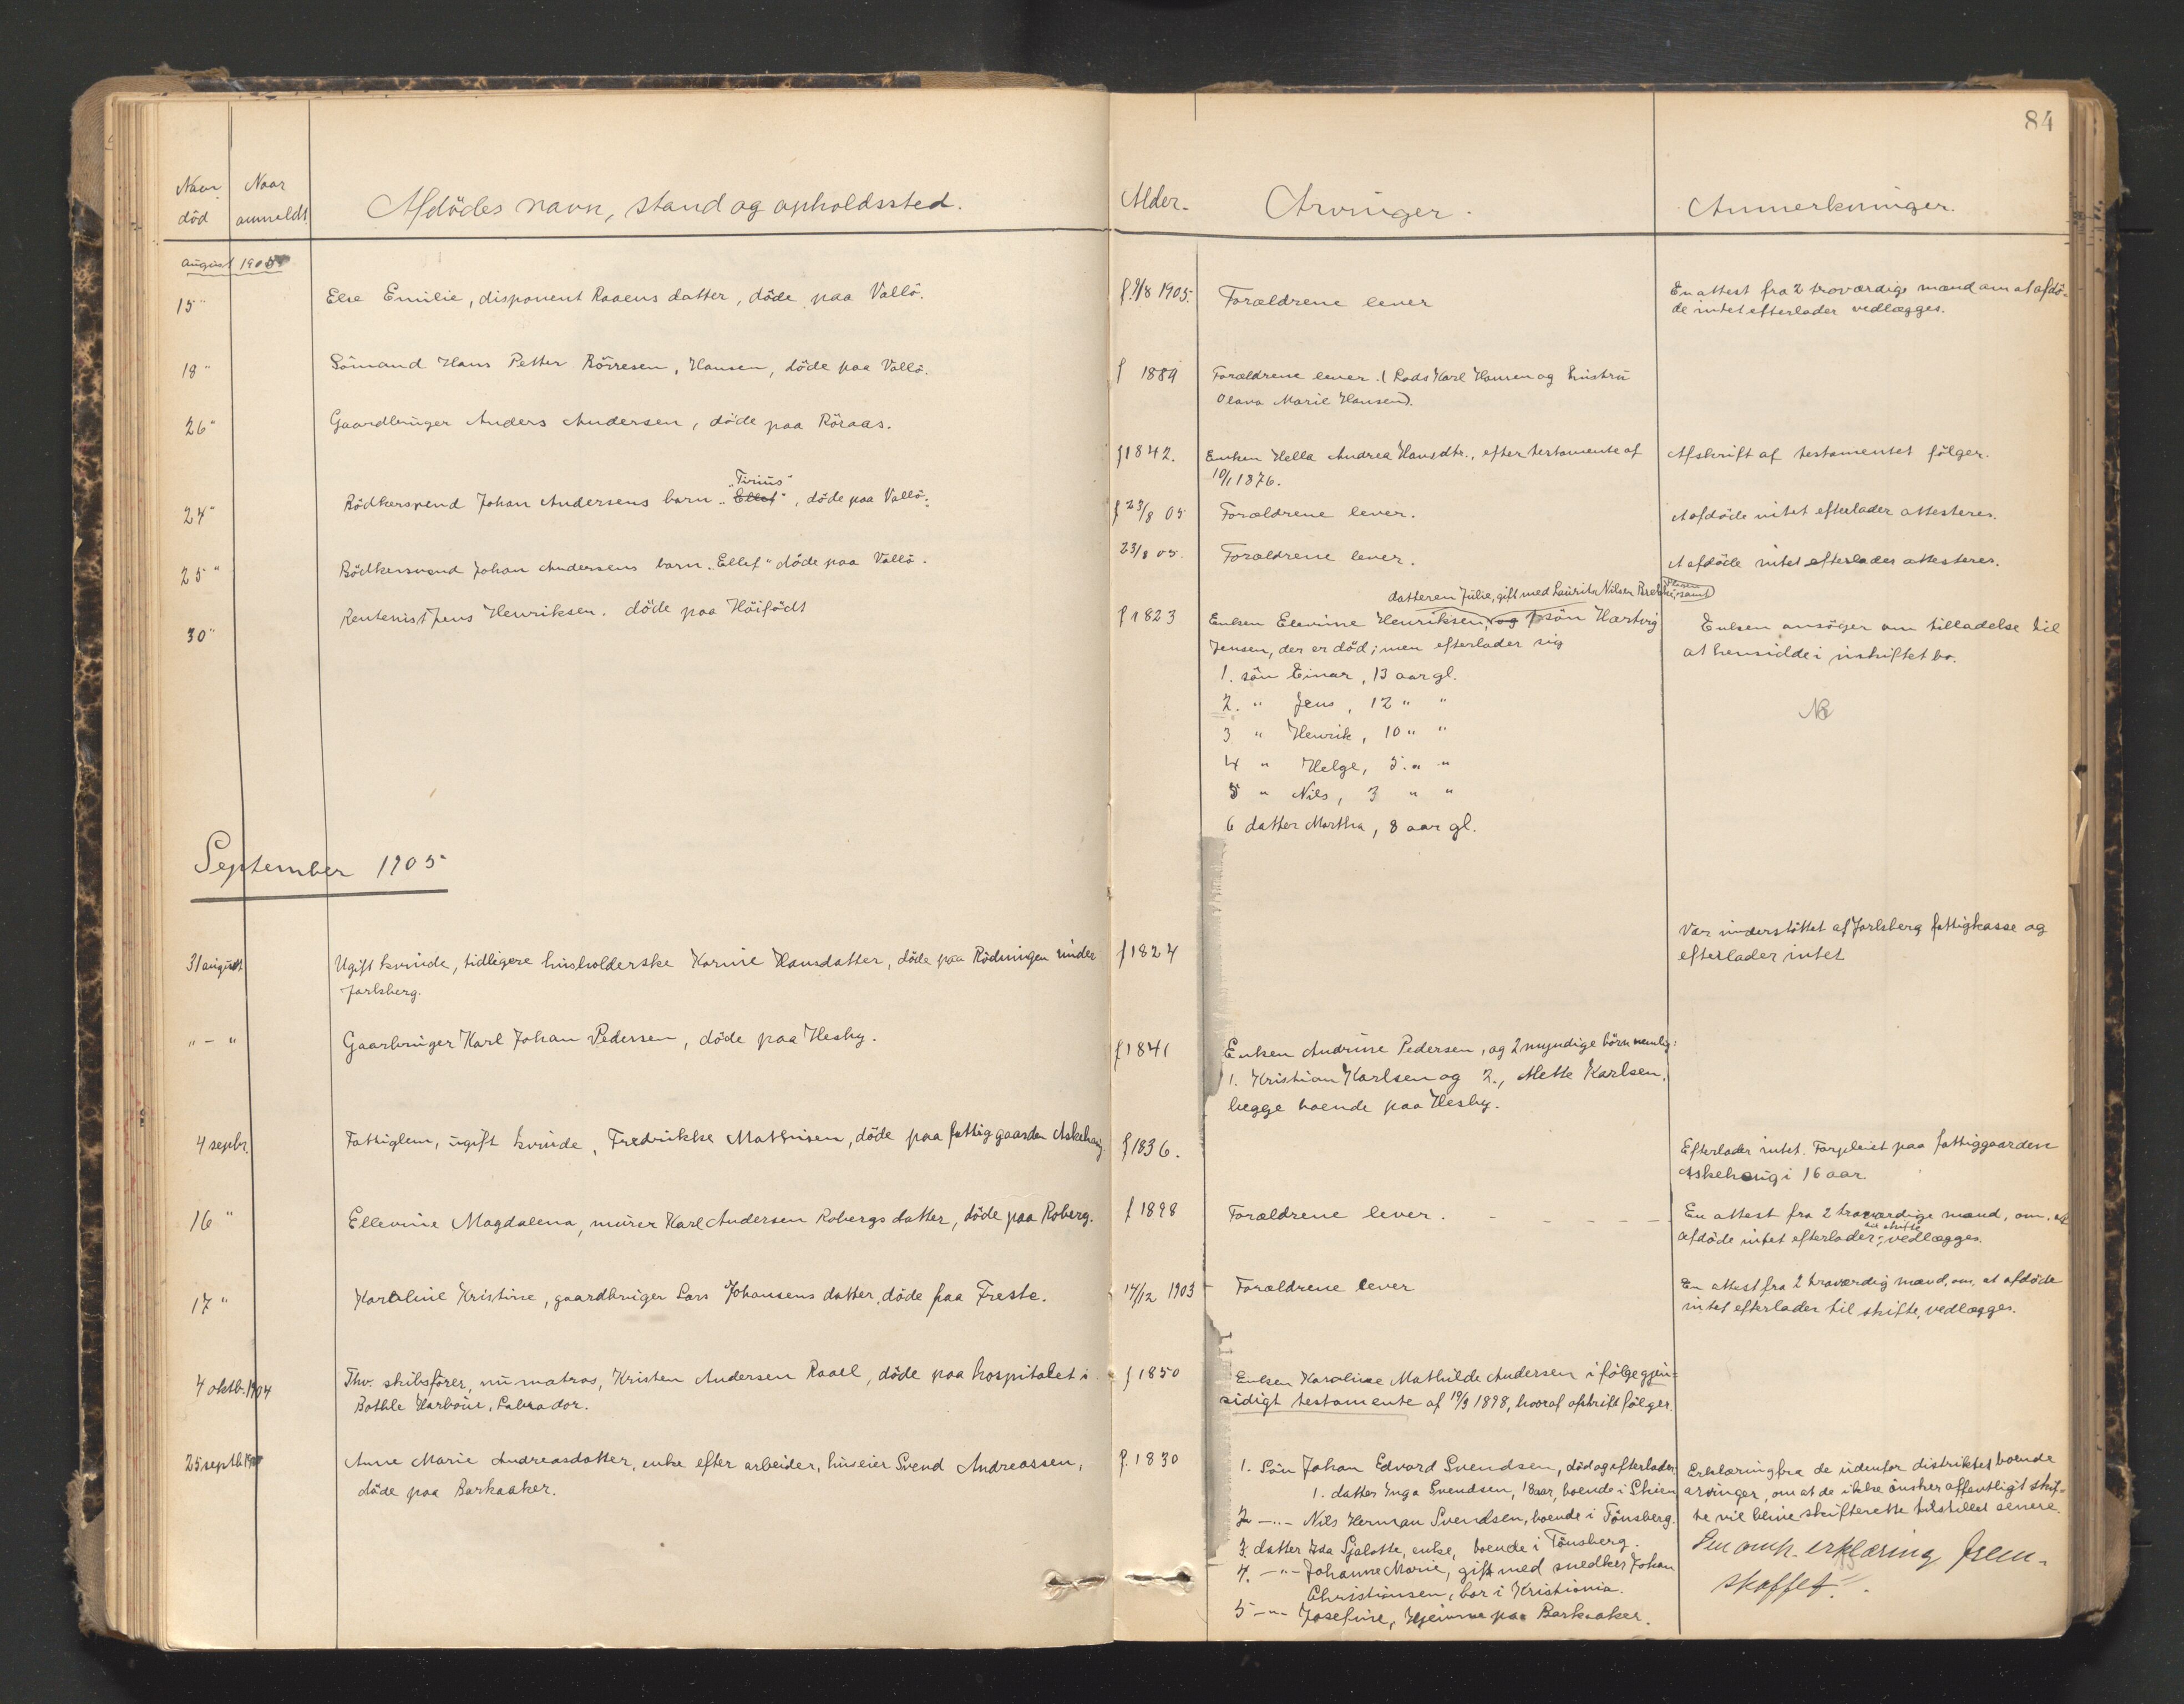 84
Naar død
Naar anmeldt
Afdödes navn, stand og opholdssted.
Alder.
Arvinger.
Anmerkninger.
August 1905
15"
Else Emilie, disponent Raaens datter, döde paa Vallö.
f 9/8 1905.
Forældrene lever
En attest fra 2 troværdige mænd om at afdö-
de intet efterlader vedlægges.
18"
Sömand Hans Petter Börresen, Hansen, döde paa Vallö.
f 1889
Forældrene lever. (Lods Karl Hansen og hustru
Olava Marie Hansen).
26"
Gaardbruger Anders Andersen, döde paa Röraas.
f 1842.
Enken Hella Andrea Hansdtr., efter testamente af
10/1 1876.
Afskrift af testamentet fölger.
24"
"Tirius"
Bödkersvend Johan Andersens barn "Ellef", döde paa Vallö.
f 23/8 05
Forældrene lever.
At afdöde intet efterlader attesteres.
25"
Bödkersvend Johan Andersens barn "Ellef" döde paa Vallö.
23/8 05.
Forældrene lever.
At afdöde intet efterlader attesteres.
30"
Rentenist Jens Henriksen. döde paa Höifödt
f 1823
datteren Julie, gift med Laurits Nilsen samt
Enken Elevine Henriksen, og sön Hartvig
Jensen, der er död; men efterlader sig
1. sön Einar, 13 aar gl.
2. " Jens, 12 " "
3 " Henrik, 10 " "
4 " Helge, 5 " "
5 " Nils, 3 " "
6 datter Martha, 8 aar gl.
Enken ansöger om tilladelse til
at hensidde i uskiftet bo.
NB
September 1905
31 august
Ugift kvinde, tidligere husholderske Karine Hansdatter, döde paa Rödningen under
Jarlsberg.
f 1824
Var understöttet af Jarlsberg fattigkasse og
efterlader intet
" - "
Gaarbruger Karl Johan Pedersen, döde paa Hesby.
f 1841
Enken Andrine Pedersen, og 2 myndige börn nemlig:
1. Kristian Karlsen og 2., Mette Karlsen,
begge boende paa Hesby.
4 septbr.
Fattiglem, ugift kvinde, Fredrikke Mathisen, döde paa fattiggaarden Askehaug
f 1836.
Efterlader intet. Forpleiet paa fattiggaarden
Askehaug i 16 aar.
16"
Ellevine Magdalena, murer Karl Andersen Robergs datter, döde paa Roberg.
f 1898
Forældrene lever. - - - - -
En attest fra 2 troværdige mænd, om, at
afdöde intet efterlader til skifte, vedlægges.
17"
Karoline Kristine, gaardbruger Lars Johansens datter, döde paa Freste.
14/12 1903
Forældrene lever
En attest fra 2 troværdig mænd, om, at afdöde
intet efterlader til skifte, vedlægges.
4 oktb. 1904
Fhv. skibsförer, nu matros, Kristen Andersen Raael, döde paa hospitalet i
Battle Harbour, Labrador.
f 1850
Enken Karoline Mathilde Andersen i fölge gjen-
sidigt testamente af 19/3 1898, hvoraf afskrift fölger.
25 septb
Anne Marie Andreasdatter, enke efter arbeider, huseier Svend Andreassen,
döde paa Barkaaker.
f. 1830
1. Sön Johan Edvard Svendsen, död og efterlader
1. datter Inga Svendsen, 18 aar, boende i Skien
2 -"- Nils Herman Svendsen, boende i Tönsberg.
3. datter Ida Sjalotte, enke, boende i Tönsberg.
4. -"- Johanne Marie, gift med snedker Johan
Christiansen, bor i Kristiania.
5 -"- Josefine, Hjemme paa Barkaaker.
Erklæring fra de udenfor distriktet boende
arvinger, om at de ikke önsker offentligt skif-
te vil blive skifteretten tilstillet senere.
Den omh. erklæring frem-
skaffet.